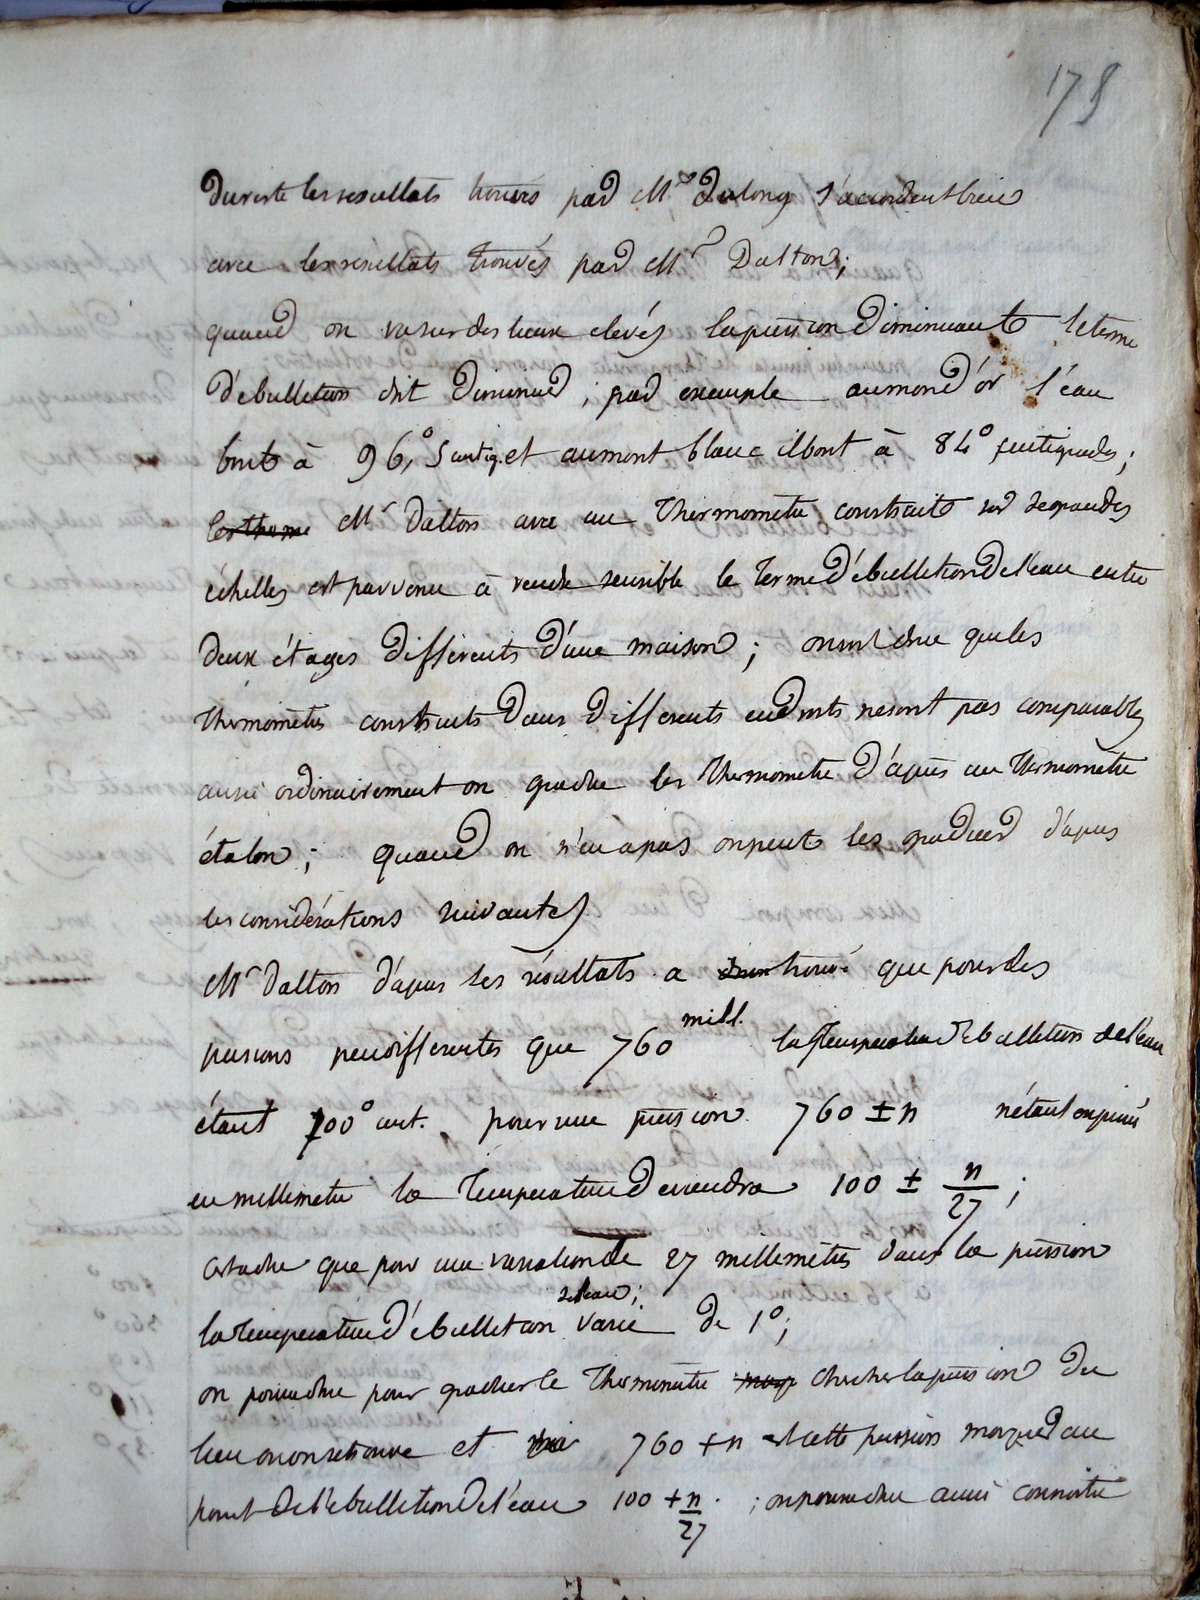 175
Dureste les resultats trouvés par Mr Dulong s'accordent bien
avec les resultats trouvés par Mr Dalton;
quand on va sur des lieux elevés la pression Diminuant le terme
D'ebulletion doit Diminuer; par exemple au mond d'or l'éau
bout à 96,° Santig. et au mont blanc il bout à 84° Santigrades;
Mr Dalton avec un Thermometre construit sur de grandes
échelles est parvenu à rendre sensible le Terme D'ébulletion De l'eau entre
Deux étages différents D'une maison; on voit donc que les
thermomètres construits Dans Differents endroits ne sont pas comparables
aussi ordinairement on gradue les Thermometre D'après un thermomètre
étalon; quand on n'en a pas on peut les graduer d'apres
les considérations suivantes
Mr Dalton d'apres ses résultats a trouvé que pour des
pressions peu differentes que 760 mill. la Temperature D'ebulletion de l'eau
étant 100° cent. pour une pression 760 ± n n étant exprimé
en millimetre la Temperature Deviendra 100 ± n/27;
Cest a dire que pour une variation de 27 millemètres dans la pression
la temperature D'ébulletion de l'eau; varie de 1°;
on pourra donc pour graduer le Thermometre chercher la pression Du
lieu ou on se trouve et si 760 + n est cette pression marquer au
point De l'ebulletion De l'eau 100 + n/27 ; on pourra donc aussi connoitre